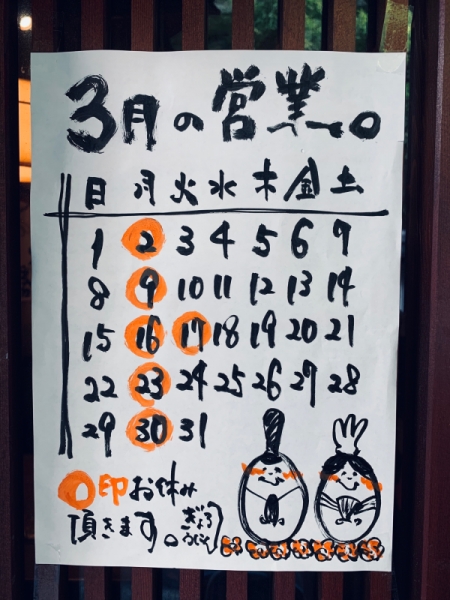 3月の営業。
日 月 火 水 木 金 土
1 2 3 4 5 6 7
8 9 10 11 12 13 14
15 16 17 18 19 20 21
22 23 24 25 26 27 28
29 30 31
○印お休み
頂きます。